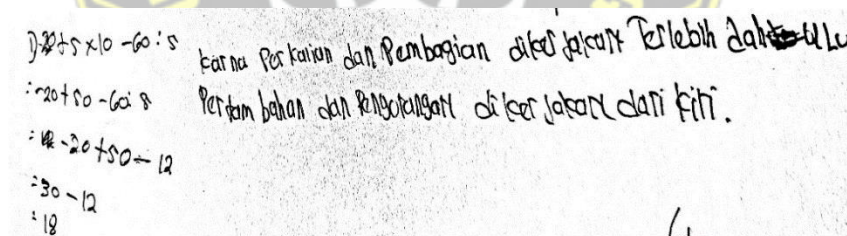 1) -20 + 5 x 10 - 60 : 5
= -20 + 50 - 60 : 5
= -20 + 50 - 12
= 30 - 12
= 18
karna Perkalian dan Pembagian dikerjakan Terlebih dahulu
Pertambahan dan Pengurangan dikerjakan dari kiri.